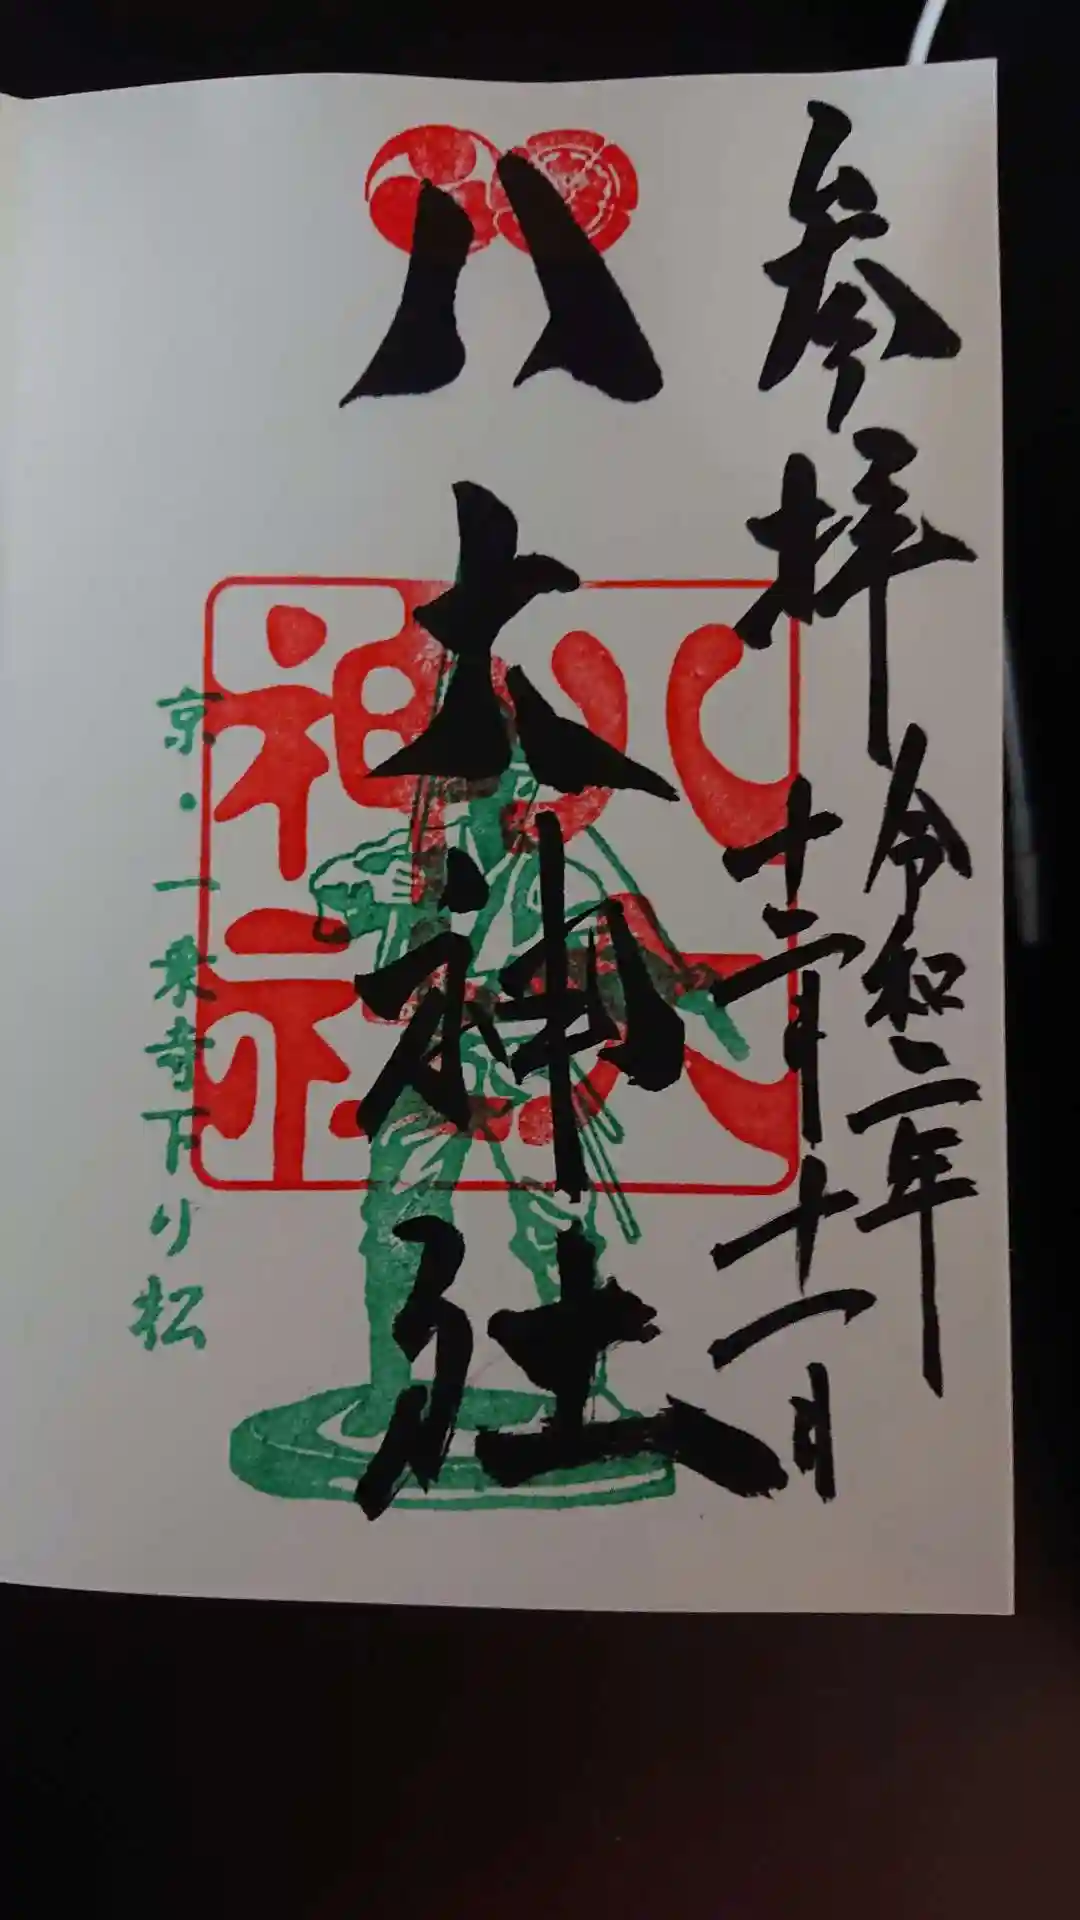 参拝
令和二年
十二月十一日
八大神社
八大
神社
京・一乗寺下り松